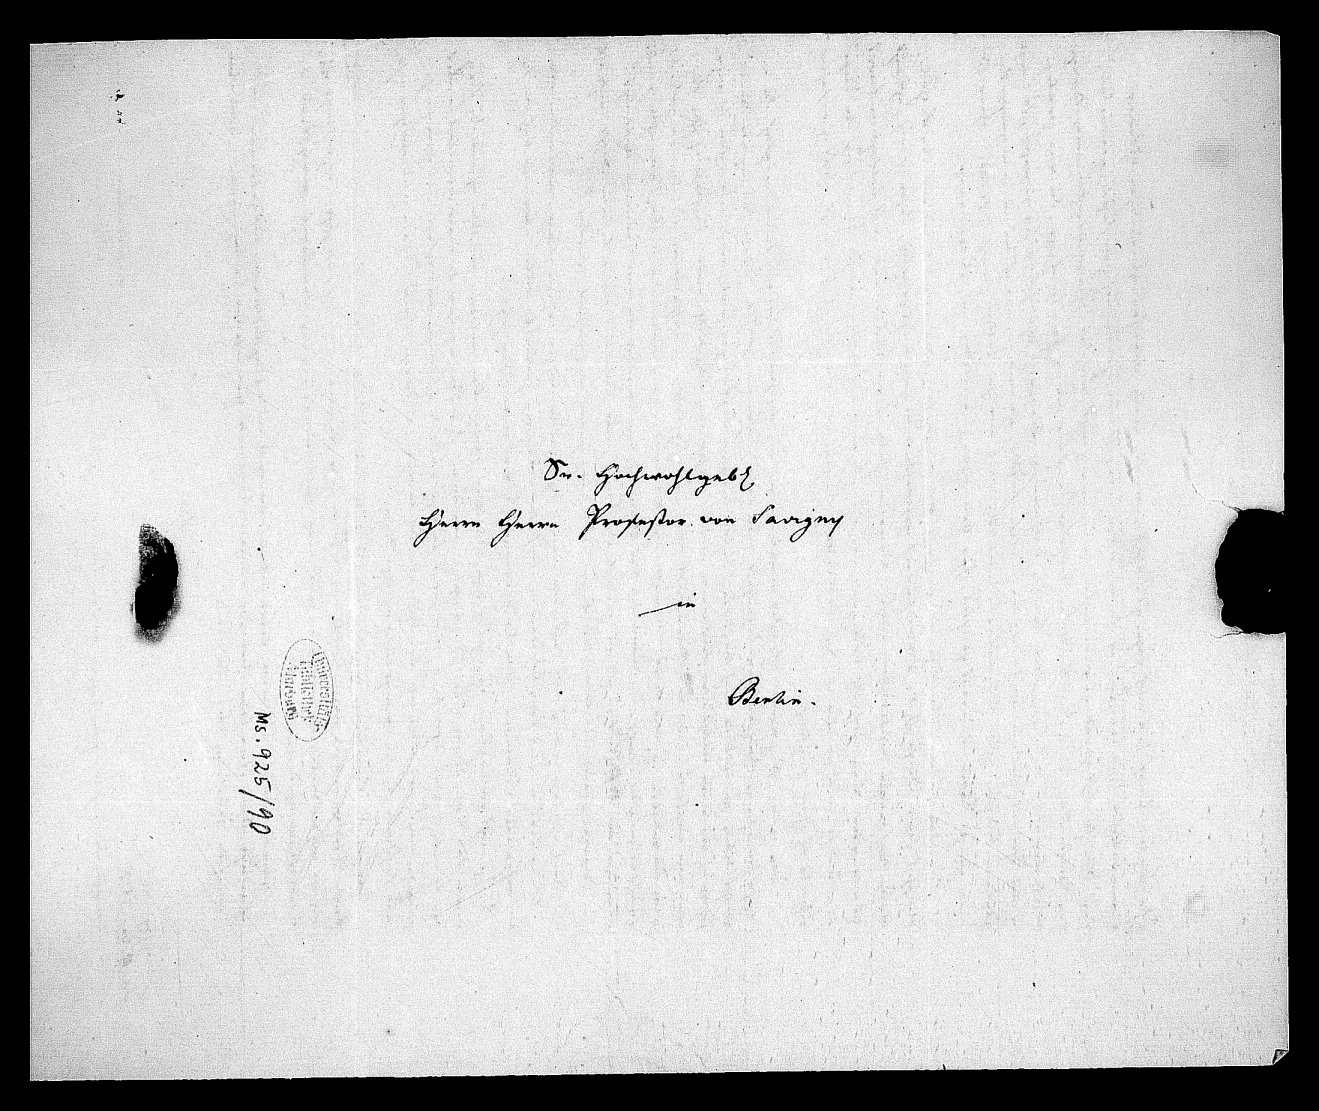 Sr. Hochwohlgeb
Herrn Herrn Professor von Savigny
in
Berlin.
Universitäts
Bibliothek
Marburg
Ms. 925/90